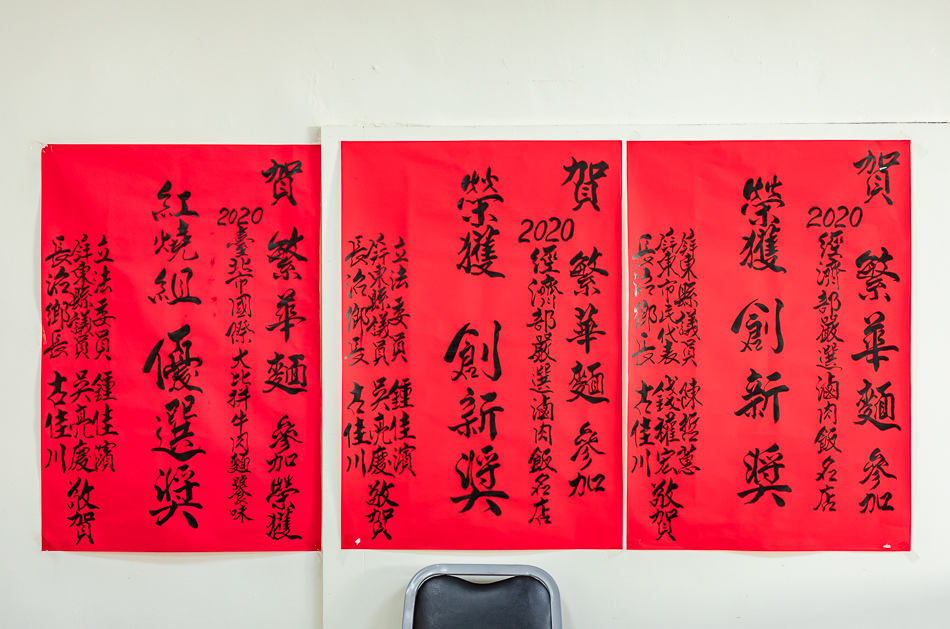 賀 繁華麵 參加
2020 經濟部嚴選滷肉飯名店
榮獲 創新獎
屏東縣議員 陳哲蕙
屏東市民代表 錢權宏
長治鄉長 古佳川
敬賀
賀 繁華麵 參加
2020 經濟部嚴選滷肉飯名店
榮獲 創新獎
立法委員 鍾佳濱
屏東縣議員 吳亮慶
長治鄉長 古佳川
敬賀
賀 繁華麵 參加榮獲
2020 臺北市國際大比拼牛肉麵味
紅燒組 優選獎
立法委員 鍾佳濱
屏東縣議員 吳亮慶
長治鄉長 古佳川
敬賀